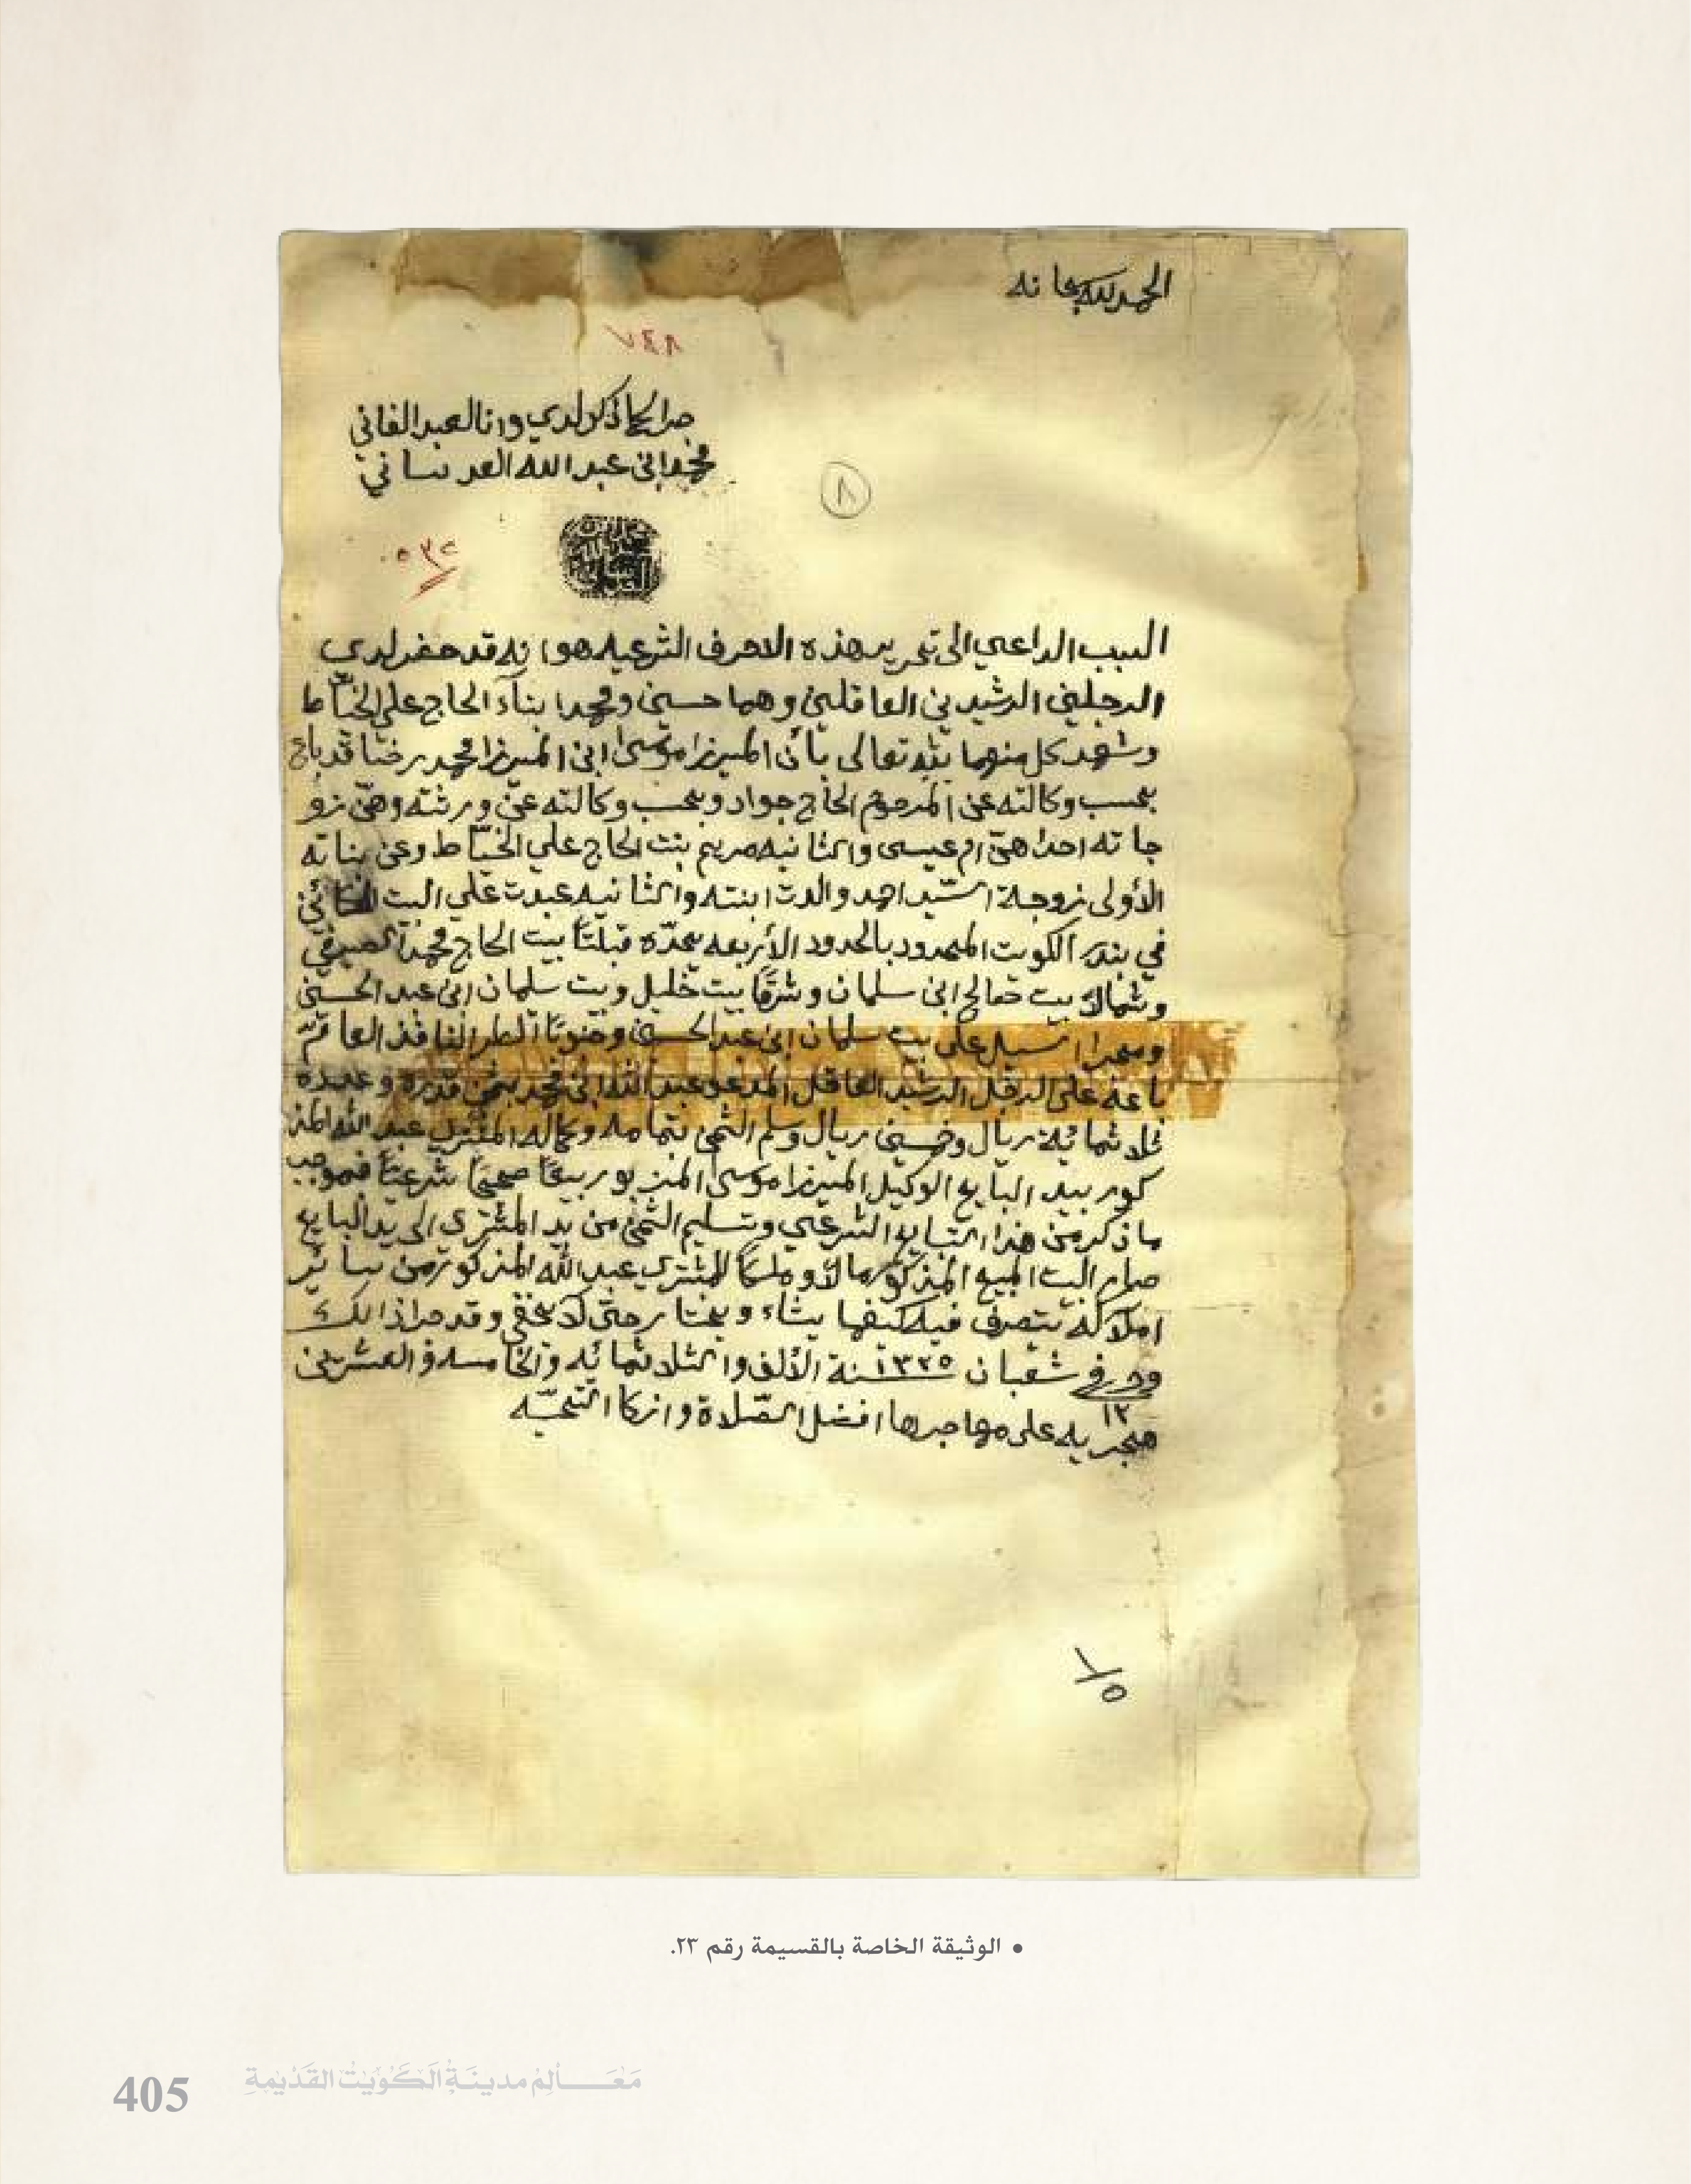 الحمد لله سبحانه
٧٤٨
جرا كما ذكر لدي وانا العبد الفاني
محمد ابن عبد الله العدساني
٨
٥٣٢
السبب الداعي الى تحرير هذه الاحرف الشرعيه هوانه قد حضر لدي
الرجلين الرشيدين العاقلين وهما حسين ومحمد ابناء الحاج علي الخيّاط
وشهد كل منهما لله تعالى بأن الميرزا موسى ابن الميرزا محمد رضا قد باع
بحسب وكالته عن المرحوم الحاج جواد وبحسب وكالته عن ورثته وهيّ زو
جاته احداهيّ ام عيسى والثانيه مريم بنت الحاج علي الخيّاط وعن بناته
الأولى زوجة السّيد احمد والدت ابنته والثانيه عبدت علي البيت الكائن
في بندر الكويت المحدود بالحدود الأربعه يحدّه قبلتاً بيت الحاج محمد الصيرفي
وشمالاً بيت صالح ابن سلمان وشرقاً بيت خليل وبيت سلمان ابن عبد الحسين
ومجرا السيل على بيت سلمان ابن عبد الحسين وجنوباً الطريق النافذ العام
باعه على الرجل الرشيد العاقل المدعو عبد الله ابن محمد بثمن قدره وعدده
ثلاثمائة ريال وخمسين ريال وسلم الثمن بتمامه وكماله المشتري عبد الله المذ
كور بيد البايع الوكيل الميرزا موسى المزبور بيعاً صحيحاً شرعيّاً فبموجب
ما ذكر من هذا التبايع الشرعي وتسليم الثمن من يد المشتري الى يد البايع
صار البيت المبيع المذكور مالاً وملكاً للمشتري عبد الله المذكور من سائر
املاكه يتصرف فيه كيفما يشاء ويختار حتى لا يخفى وقد جرا ذالك
وحرر في ١٢ شعبان سنة ١٣٢٥ الألف والثلاثمائه والخامسه والعشرين
هجريه على مهاجرها افضل الصّلاة وازكا التحيّه
١/٥
• الوثيقة الخاصة بالقسيمة رقم ٢٣.
405 مَعَالِمُ مدينَةُ الكُوَيْت القَدْيمَةِ